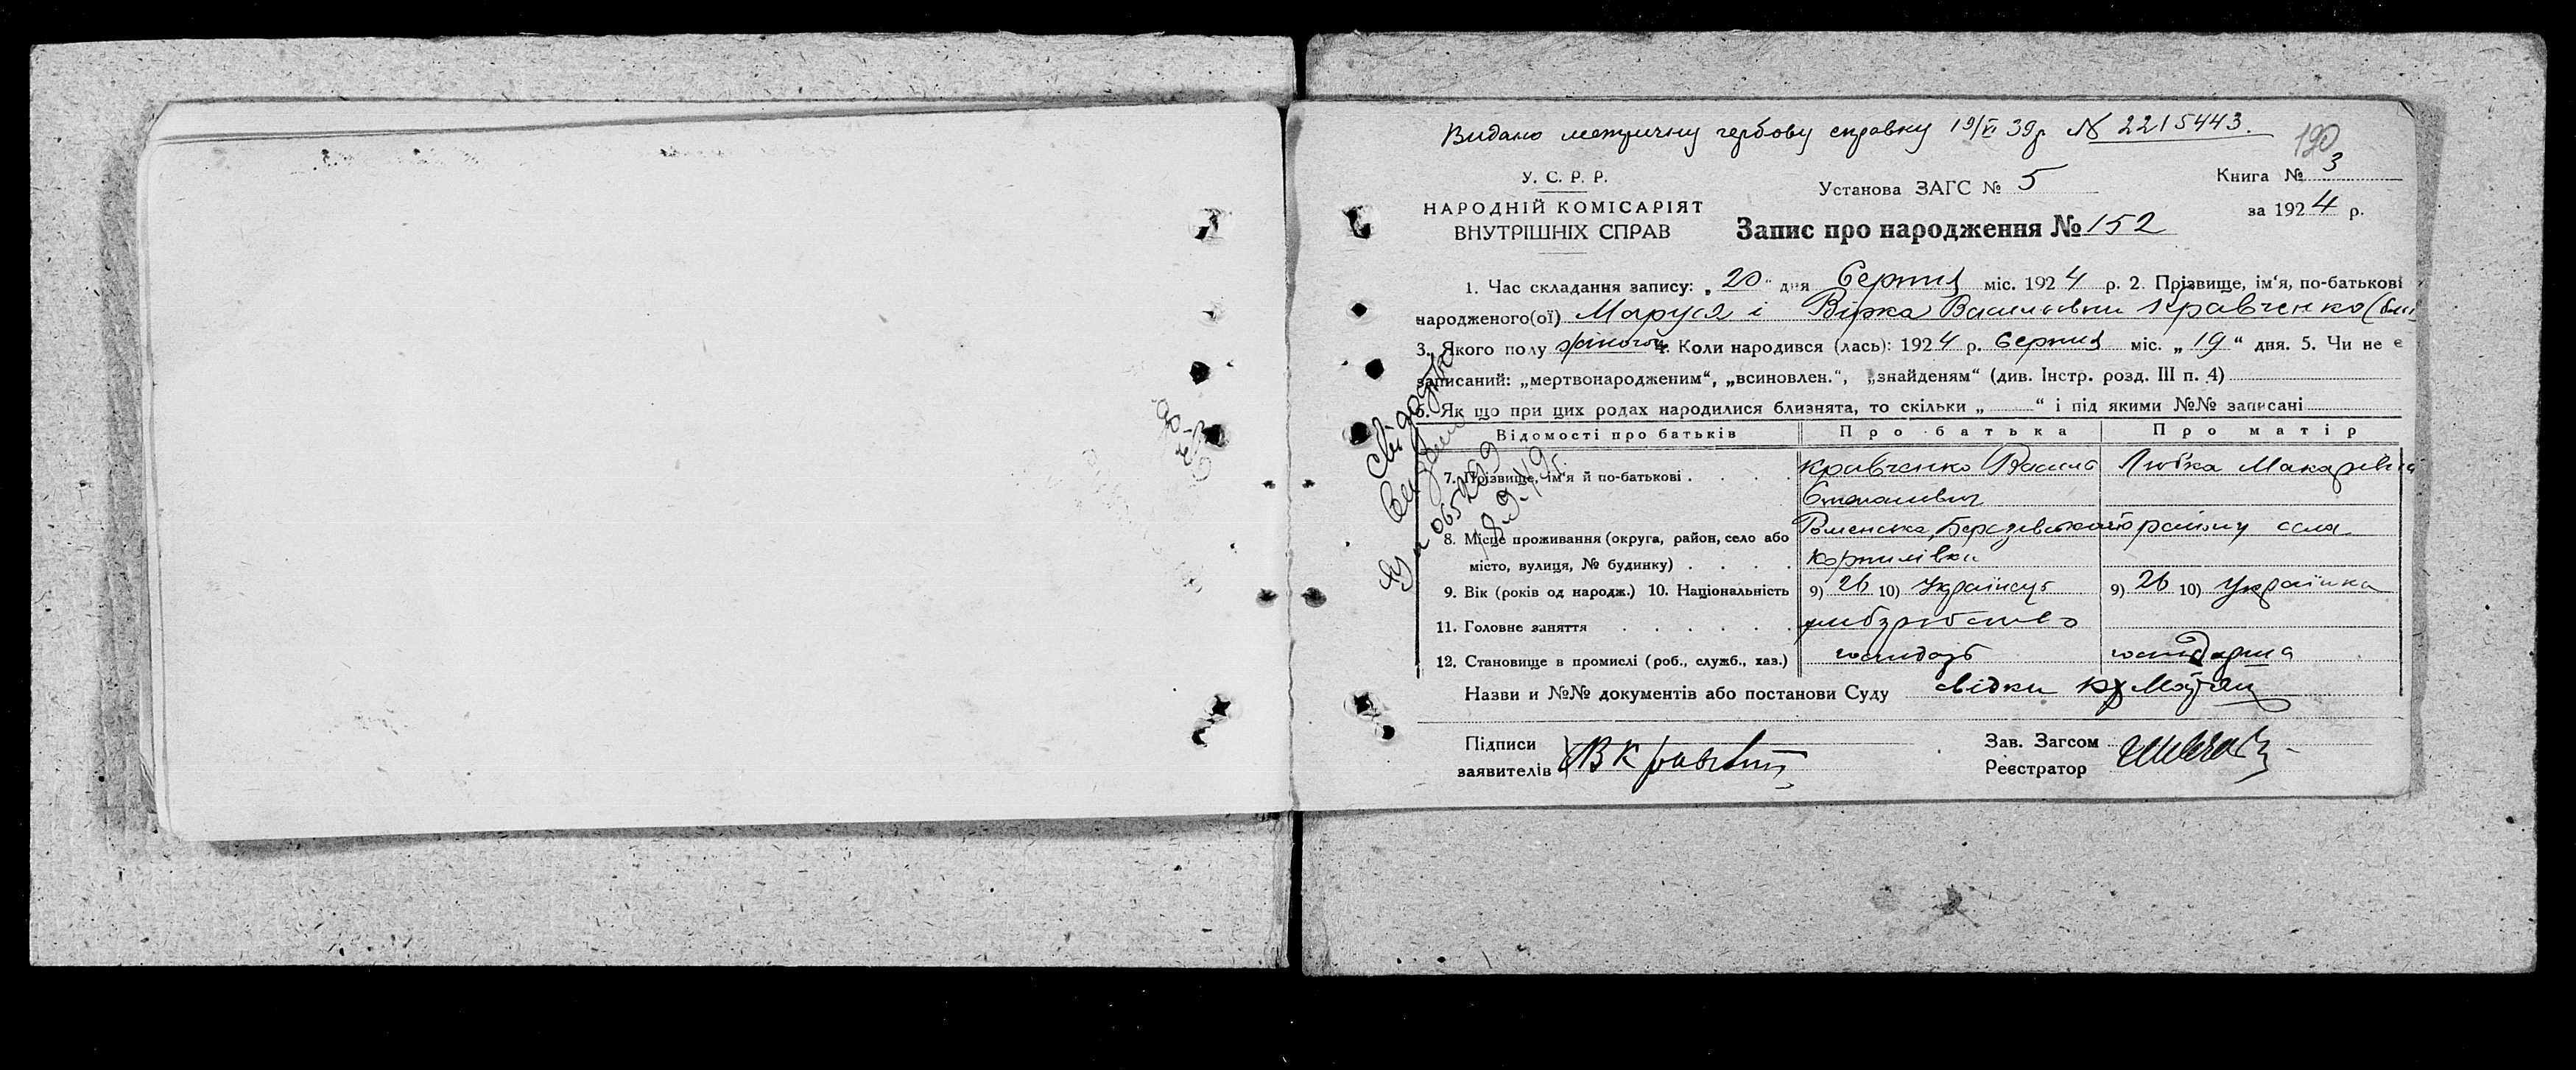 Видано метричну гербову справку 19/VI 39р № 2215443.
190
У. С. Р. Р.
НАРОДНІЙ КОМІСАРІЯТ
ВНУТРІШНІХ СПРАВ
Установа ЗАГС № 5
Книга № 3
за 1924 р.
Запис про народження № 152
1. Час складання запису: „20" дня Серпня міс. 1924 р. 2. Прізвище, ім'я, по-батькові
народженого(ої) Маруся і Вірка Василівни Кравченко
3. Якого полу жіночого 4. Коли народився (лась): 1924 р. Серпня міс. „19" дня. 5. Чи не є
записаний: „мертвонародженим", „всиновлен.", „знайденям" (див. Інстр. розд. III п. 4)
6. Як що при цих родах народилися близнята, то скільки „ " і під якими №№ записані
Відомості про батьків Про батька Про матір
7. Прізвище, ім'я й по-батькові Кравченко Василь Любка Макарівна
Степанович
8. Місце проживання (округа, район, село або Роменська, району села
місто, вулиця, № будинку) Коржилівки
9. Вік (років од народж.) 10. Національність 9) 26 10) Українець 9) 26 10) Українка
11. Головне заняття хліборобство
12. Становище в промислі (роб., служб., хаз.) господарь господарка
Назви и №№ документів або постанови Суду свідки
Підписи
заявителів В Кравченко
Зав. Загсом
Реєстратор
18.9.49г.